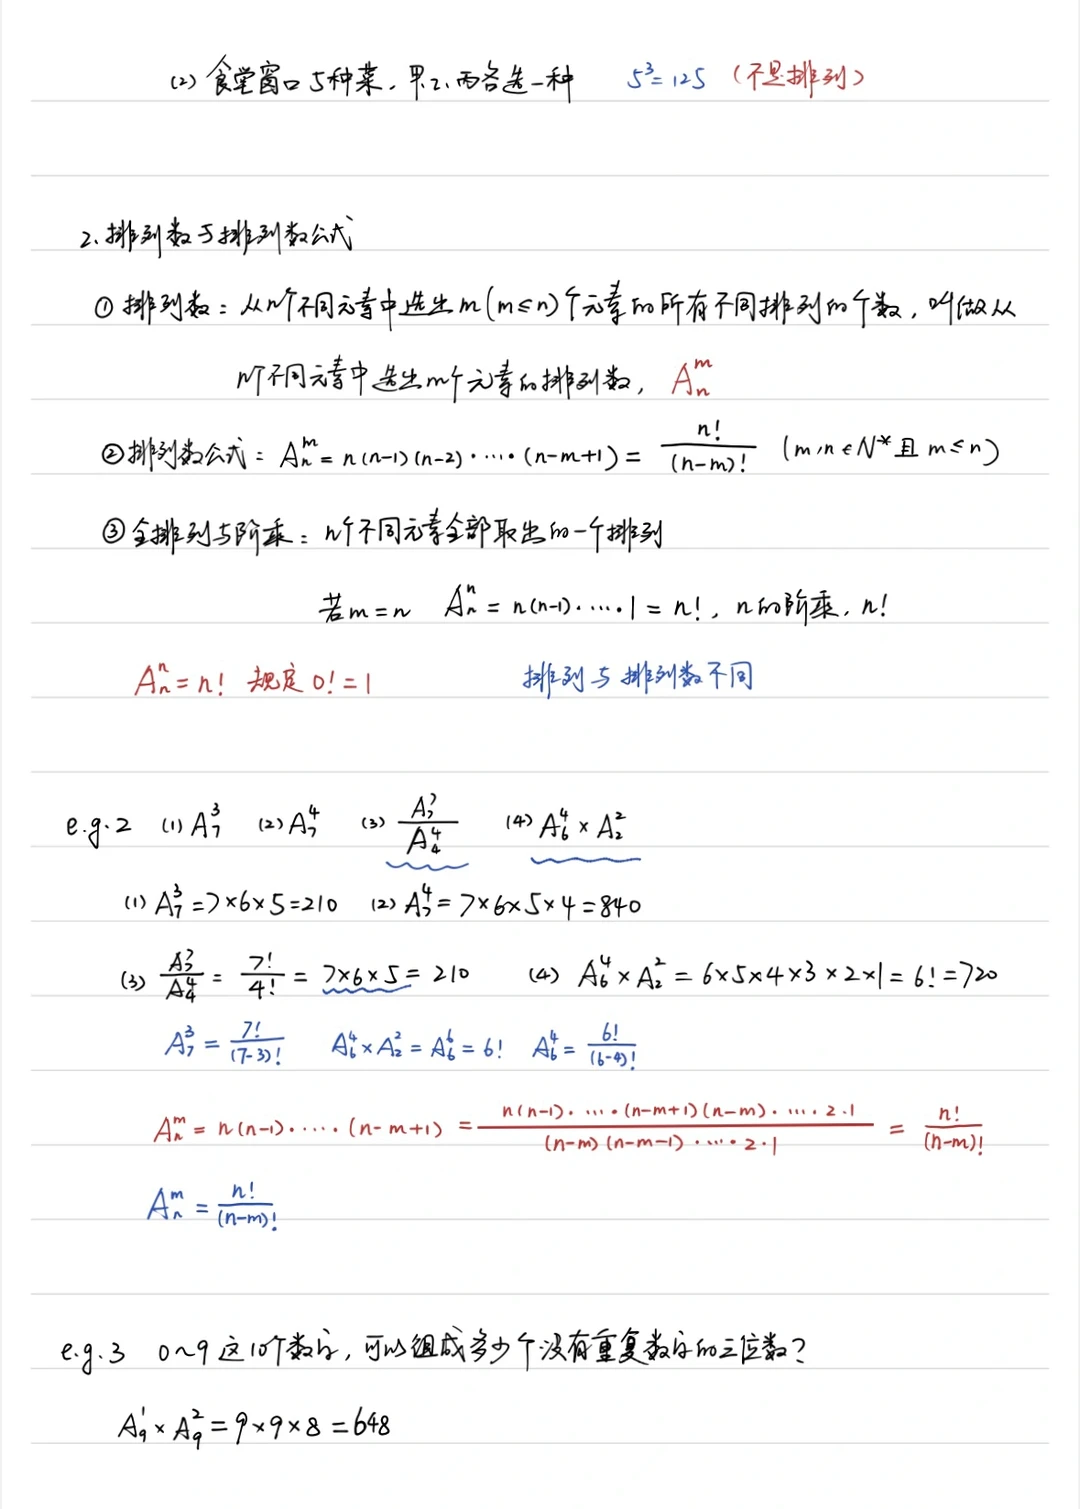 (2) 食堂窗口5种菜，甲、乙、丙各选一种 5³=125 (不是排列)
2、排列数与排列数公式
① 排列数：从n个不同元素中选出m(m≤n)个元素的所有不同排列的个数，叫做从
n个不同元素中选出m个元素的排列数，A_n^m
②排列数公式：A_n^m = n(n-1)(n-2)·····(n-m+1) = n!/(n-m)! (m,n∈N*且m≤n)
③全排列与阶乘：n个不同元素全部取出的一个排列
若m=n A_n^n = n(n-1)·····1 = n!，n的阶乘，n!
A_n^n = n! 规定0!=1 排列与排列数不同
e.g.2 (1) A_7^3 (2) A_7^4 (3) A_7^7/A_4^4 (4) A_6^4 × A_2^2
(1) A_7^3 = 7×6×5=210 (2) A_7^4 = 7×6×5×4=840
(3) A_7^7/A_4^4 = 7!/4! = 7×6×5 = 210 (4) A_6^4 × A_2^2 = 6×5×4×3×2×1 = 6! = 720
A_7^3 = 7!/(7-3)! A_6^4 × A_2^2 = A_6^6 = 6! A_6^4 = 6!/(6-4)!
A_n^m = n(n-1)·····(n-m+1) = n(n-1)·····(n-m+1)(n-m)·····2·1/(n-m)(n-m-1)·····2·1 = n!/(n-m)!
A_n^m = n!/(n-m)!
e.g.3 0~9这10个数字，可以组成多少个没有重复数字的三位数？
A_9^1 × A_9^2 = 9×9×8 = 648